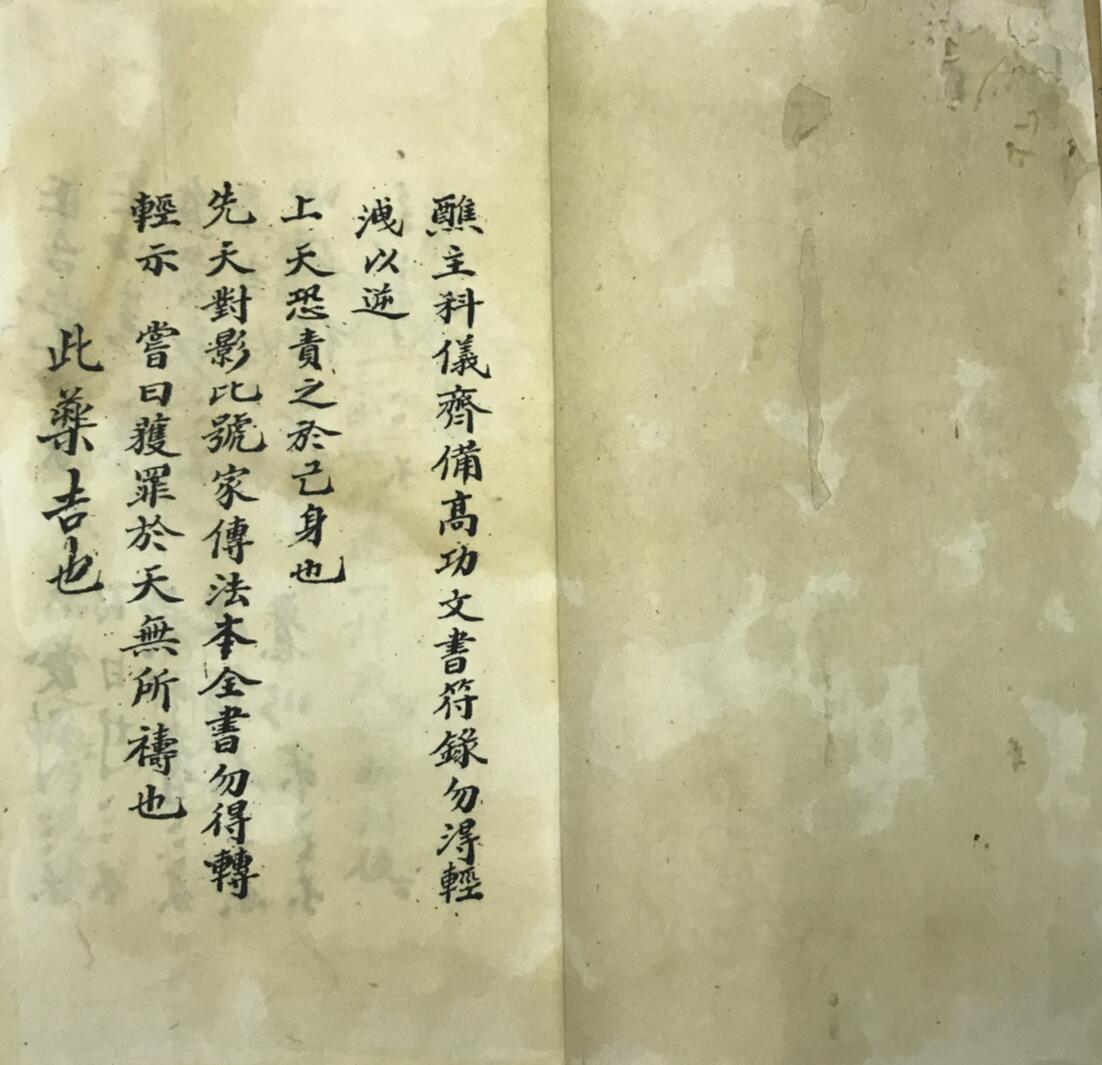 醮主科儀齊備高功文書符錄勿淂輕
洩以逆
上天恐責之於己身也
先天對影比號家傳法本全書勿得轉
輕示 嘗曰獲罪於天無所禱也
此藥吉也